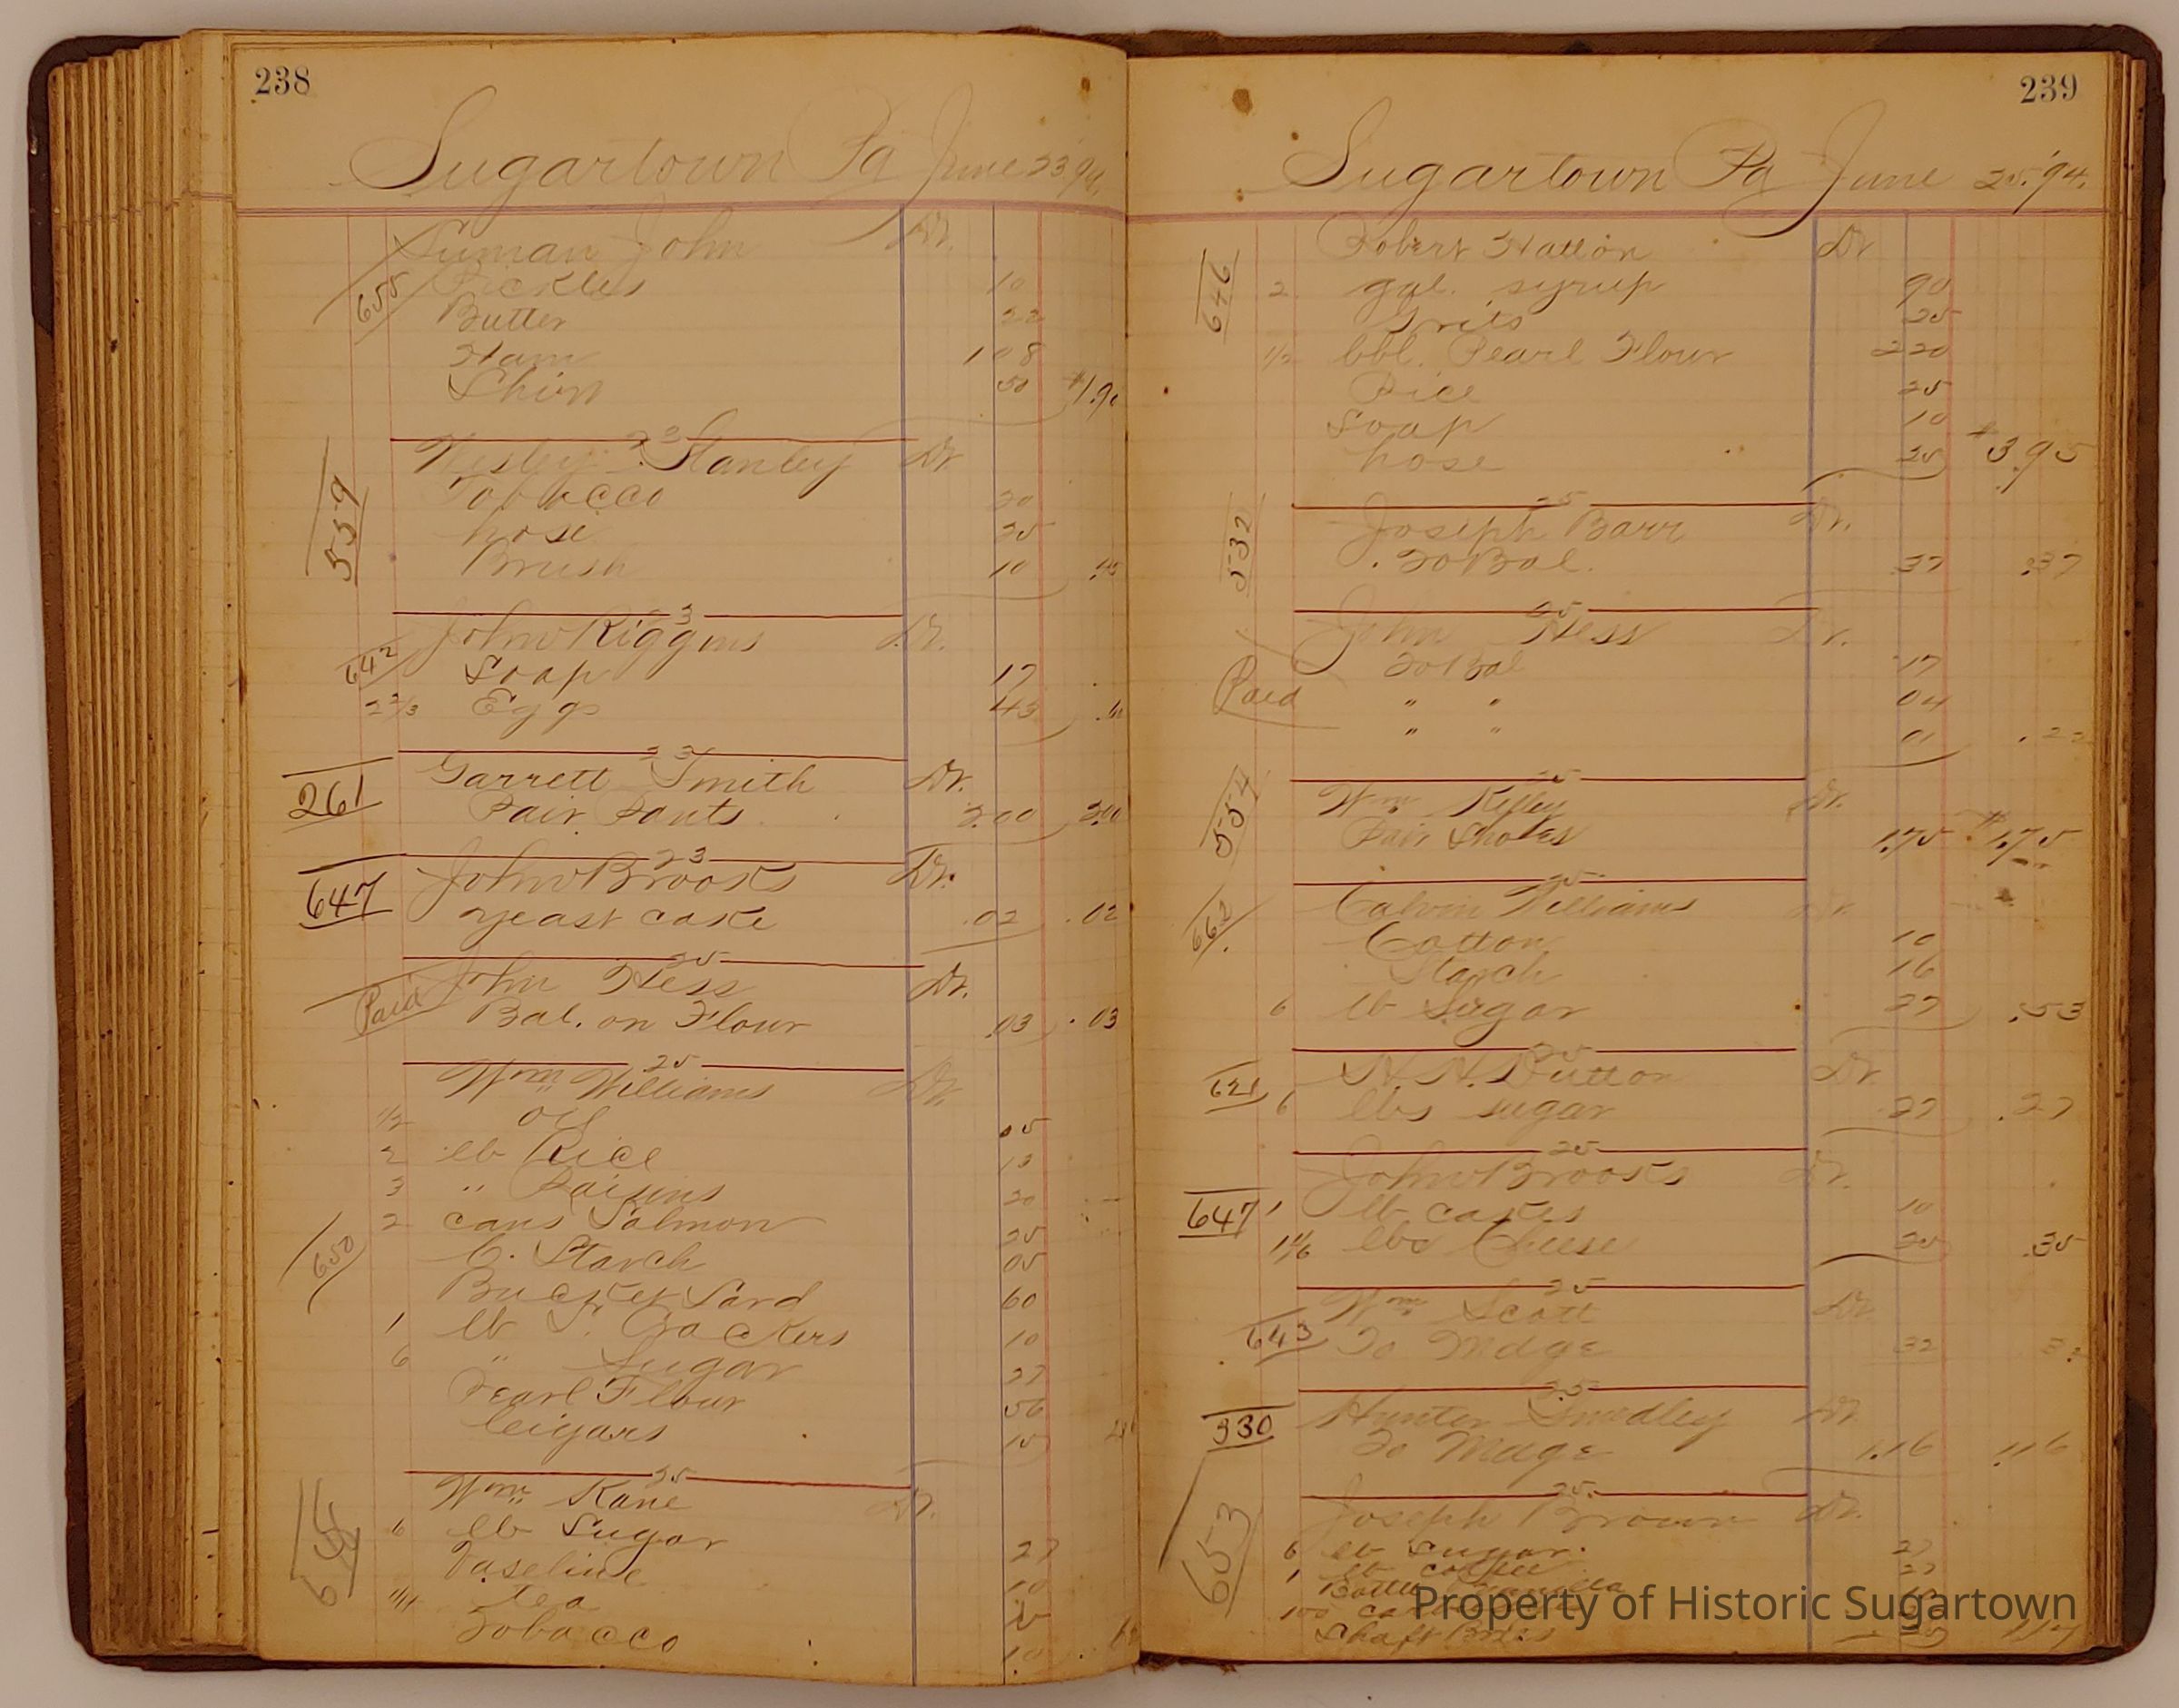 238
Sugartown Pa June 23 '94.
655
Suman John Dr.
Pickles 10
Butter 22
Ham 108
Shirt 50 $1.90
23
559
Wesley Stanley Dr
Tobacco 20
hose 25
Brush 10
23
642
John Riggins Dr.
Soap 17
2 2/3 Eggs 43
23
261
Garrett Smith Dr.
Pair Pants 2.00 2.00
23
647
John Brooks Dr.
yeast cake .02 .02
25
Paid
John Hess Dr.
Bal. on Flour .03 .03
25
650
Wm Williams Dr.
1/2 oil 05
2 lb Rice 13
3 " Raisins 20
2 cans Salmon 25
C. Starch 05
Bucket Lard 60
1 lb S. Crackers 10
6 " Sugar 27
Pearl Flour 56
Cigars 15
25
Wm Kane Dr.
6 lb Sugar 27
Vaseline 10
1/4 tea 15
Tobacco 10
239
Sugartown Pa June 25. '94.
646
Robert Hatton Dr
2 gal. syrup 90
Grits 25
1/2 bbl. Pearl Flour 220
Rice 25
Soap 10
hose 25 $3.95
25
532
Joseph Barr Dr.
To Bal. .37 .37
25
Paid
John Hess Dr.
To Bal 17
" " 04
" " 01 .22
25
554
Wm Kelley Dr.
Pair Shoes 1.75 $1.75
25
662
Calvin Williams Dr.
Cotton 10
Starch 16
6 lb Sugar 27 .53
25
621
N. N. Dutton Dr
6 lbs sugar .27 .27
25
647
John Brooks Dr.
1 lb cakes 10
lbs Cheese 25 .35
25
643
Wm Scott Dr.
To Mdge 32
25
330
Hunter Smedley Dr
To Mdge 1.16 1.16
25.
653
Joseph Brown Dr.
6 lb Sugar 27
1 lb coffee 27
Bottle Vanilla
100
Shaft
Property of Historic Sugartown